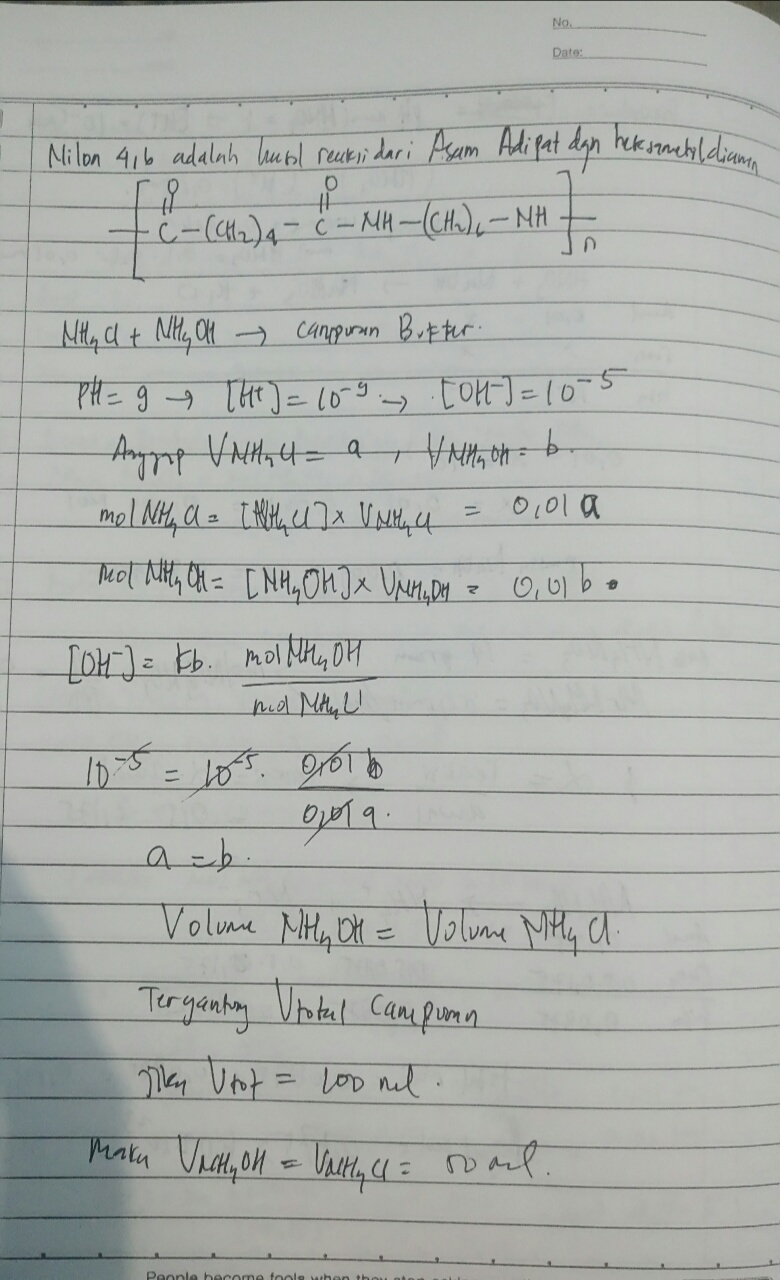 No.
Date:
Nilon 4,6 adalah hasil reaksi dari Asam Adipat dgn heksametildiamin
O O
[ C - (CH2)4 - C - NH - (CH2)6 - NH ]n
NH4Cl + NH4OH → Campuran Buffer.
PH = 9 → [H+] = 10-9 → [OH-] = 10-5
Anggap VNH4Cl = a , VNH4OH = b.
mol NH4Cl = [NH4Cl] x VNH4Cl = 0,01 a
mol NH4OH = [NH4OH] x VNH4OH = 0,01 b
[OH-] = Kb. mol NH4OH
mol NH4Cl
10-5 = 10-5. 0,01 b
0,01 a.
a = b.
Volume NH4OH = Volume NH4Cl.
Tergantung Vtotal Campuran
Jika Vtot = 100 ml.
Maka VNH4OH = VNH4Cl = 50 ml.
People become fools when they stop